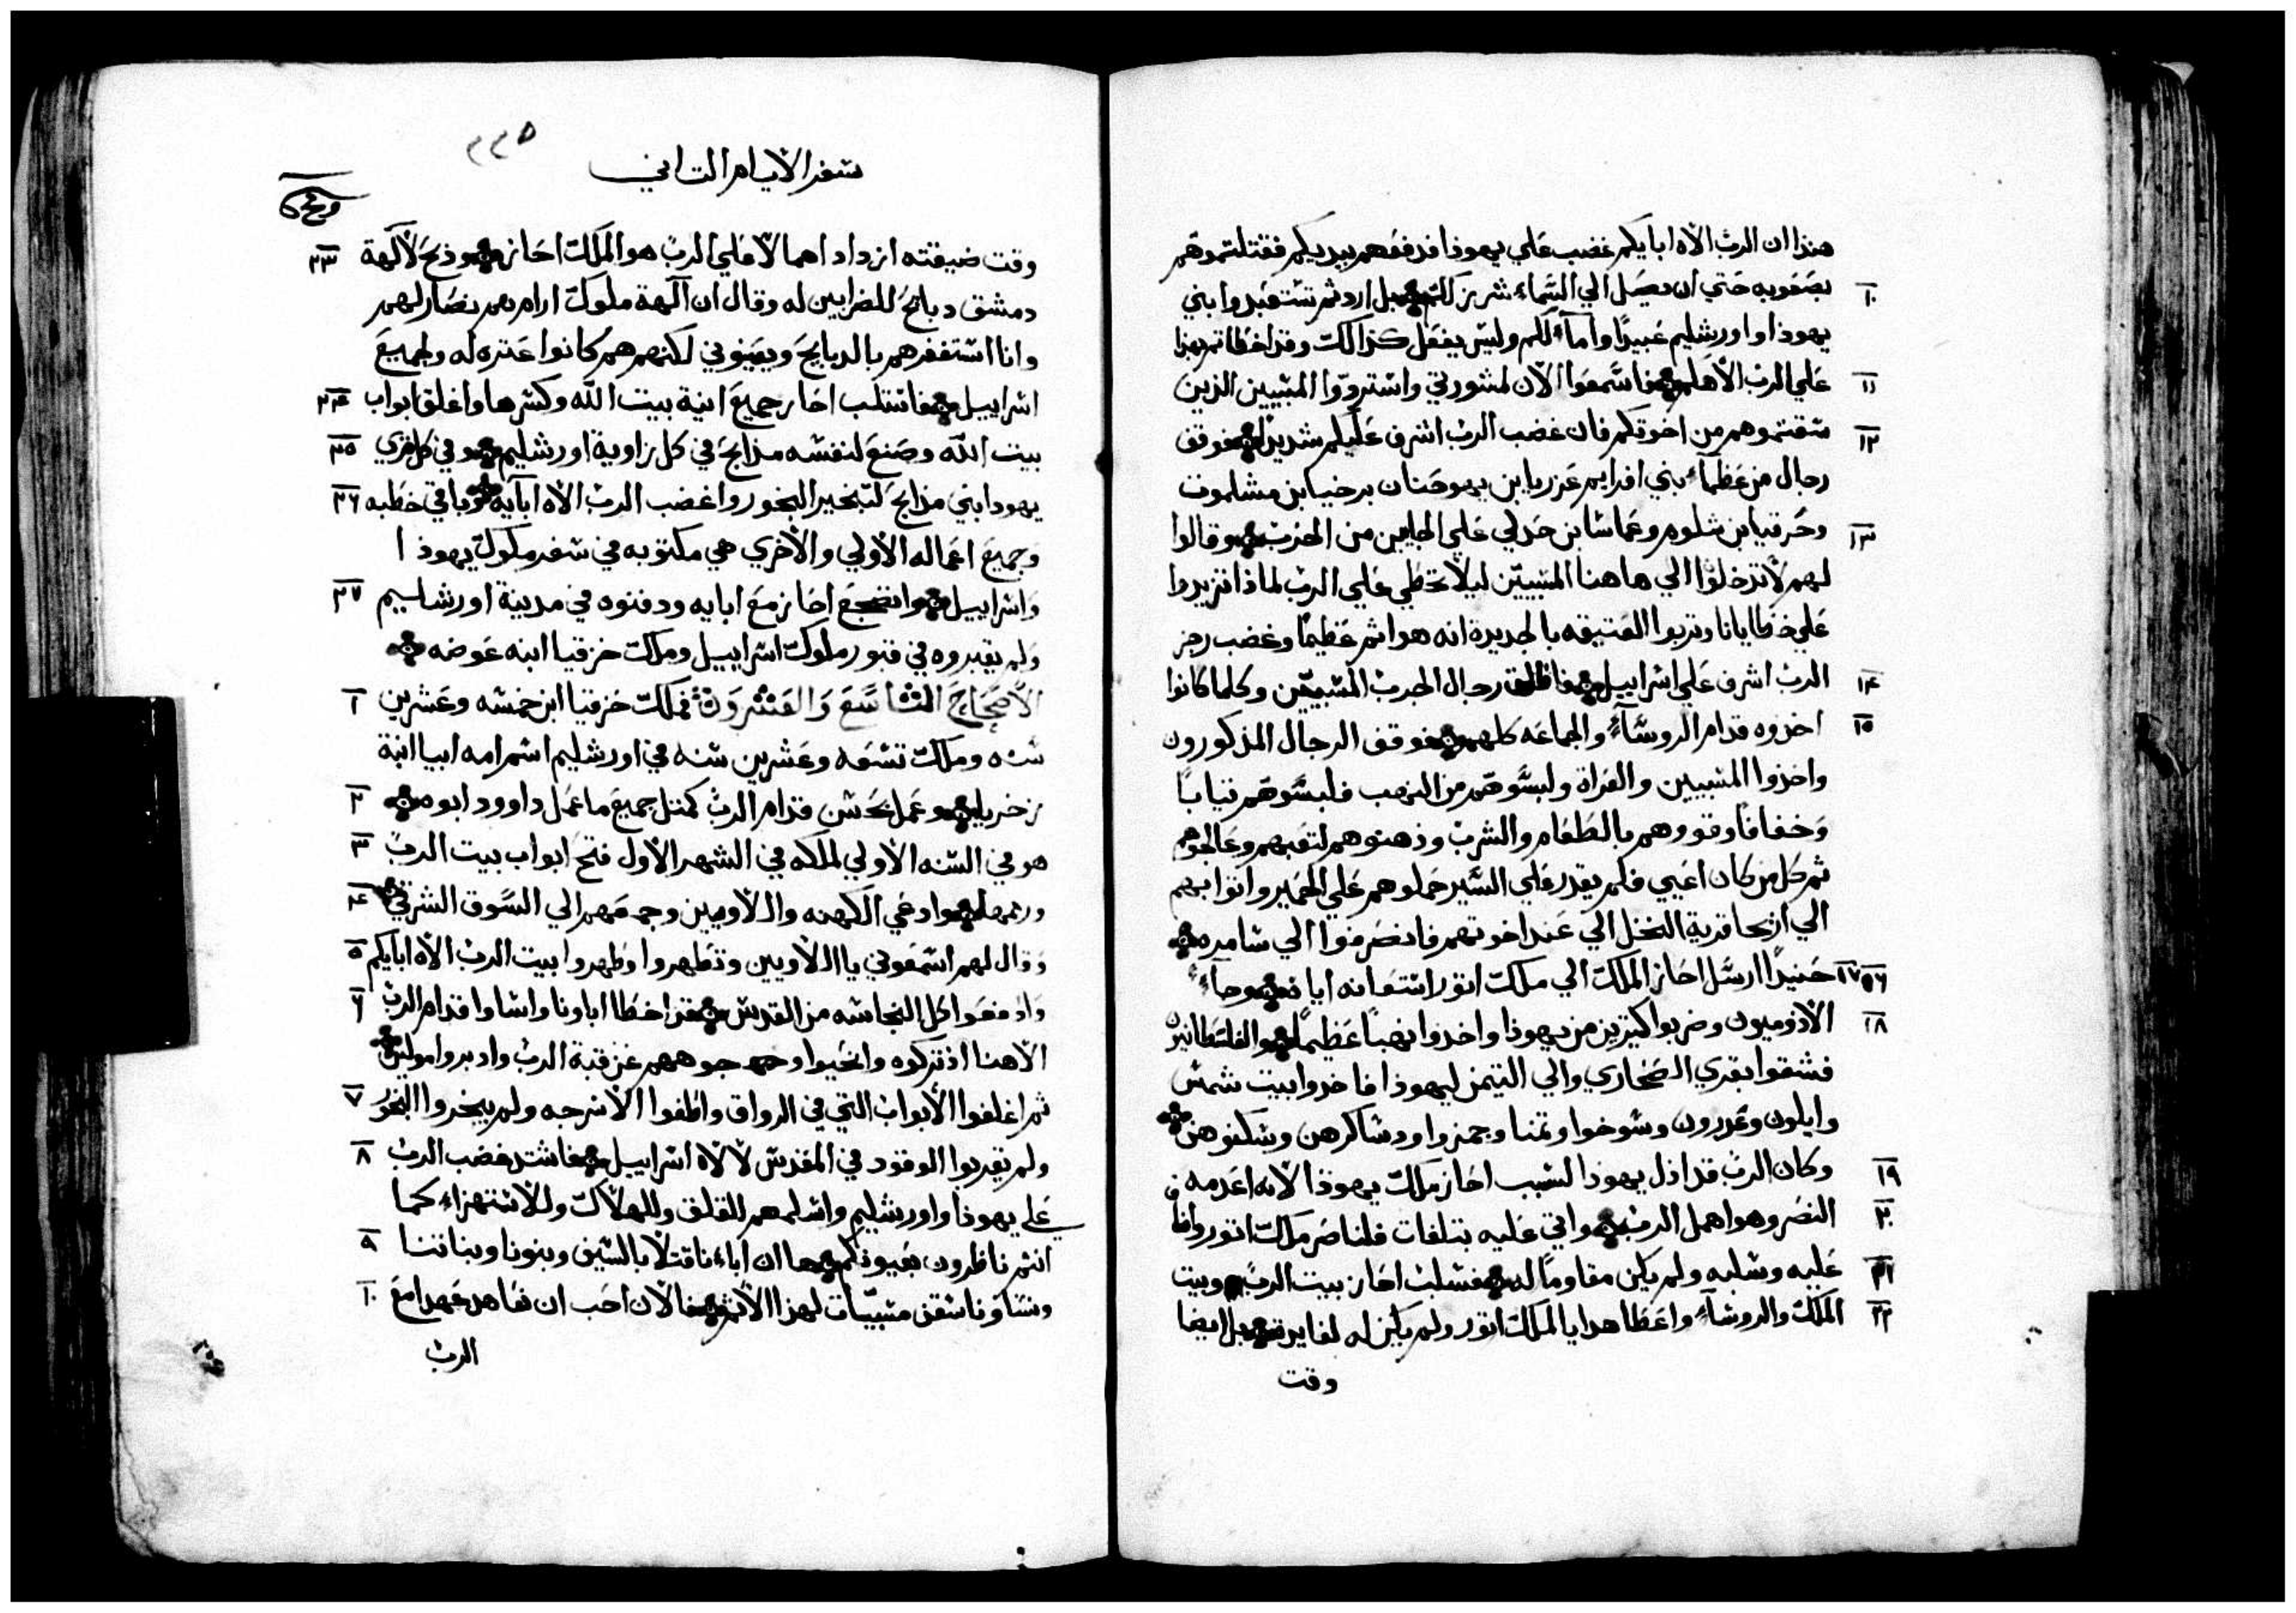 هذا ان الرب الاه ابايكم غضب علي يهوذا فدفعهم بيديكم فقتلتموهم
١٠ بصعوبه حتي ان يصل الي السماء شرر بل اردتم تستعبدوا بني
يهوذا واورشليم عبيدًا واماءً لكم وليس يفعل كذالك وقد اخطاتم بهذا
١١ علي الرب الاهكم فاسمعوا الآن لمشورتي واستردوا المسبيين الذين
١٢ سقتموهم من اخوتكم فان غضب الرب اشرف عليكم شديدًا فوقف
رجال من عظماء بني افرايم عزريا بن يهوحنان برخيا بن مشلموت
١٣ وحزقيا بن شلوم وعماسا بن حدلي علي الجايين من الحرب وقالوا
لهم لا تدخلوا الي هاهنا المسبيين ليلا نخطي علي الرب لماذا تزيدوا
علي خطايانا وتربوا العتيقه بالجديدة انه هو اثم عظيمًا وغضب رجز
١٤ الرب اشرف علي اسراييل فاطلق رجال الحرب المسبيين وكلما كانوا
١٥ اخذوه قدام الروسآء والجماعه كلهم فوقف الرجال المذكورون
واخذوا المسبيين والعراة ولبسوهم من النهب فلبسوهم ثيابًا
وخفافًا وقووهم بالطعام والشرب ودهنوهم لتعبهم وعالجوهم
ثم كل من كان اعيي فلم يقدر علي السير حملوهم علي الحمير واتوا بهم
الي اريحا قرية النخل الي عند اخوتهم فانصرفوا الي سامره
١٦ ١٧ حنيدًا ارسل احاز الملك الي ملك اتور استعانه اياه وجاء
١٨ الادوميون وضربوا كثيرين من يهوذا واخدوا نهبًا عظيمًا والفلسطانيين
فشقوا بقري الصحاري والي التيمن ليهوذا فاخدوا بيت شمس
وايلون وغدرون وسوخوا وتمنا وجمزوا ودساكرهن وسكنوهن
١٩ وكان الرب قد اذل يهوذا لسبب احاز ملك يهوذا لانه اعدمه
٢٠ النصر وهو اهمل الرب واتي عليه بتلفات فلناصر ملك اتور وافا
٢١ عليه وسلبه ولم يكن مقاومًا له فسلب احاز بيت الرب وبيت
٢٢ الملك والروسآء واعطا هدايا لملك اتور ولم يكن له لفايده بل ايضا
وقت
٢٢٥
سفر الايام التاني
وقت ضيقته ازداد اهمالًا علي الرب هو الملك احاز وذبح لآلهة ٢٣
دمشق دبايح للضرابين له وقال ان آلهة ملوك ارام هم نصار لهم
وانا استغفرهم بالدبايح ويعينوني لكنهم هم كانوا عتره له ولجميع
اسراييل فاستلب احاز جميع انية بيت الله وكسرها واغلق ابواب ٢٤
بيت الله وصنع لنفسه مدابح في كل زاوية اورشليم وفي كل قري ٢٥
يهودا بني مذابح لتبخير البخور واغضب الرب الاه آبآيه وباقي خطبه ٢٦
وجميع اعماله الأولي والأخري هي مكتوبه في سفر ملوك يهوذا
واسراييل وانضجع احاز مع ابايه ودفنوه في مدينة اورشليم ٢٧
ولم يقبروه في قبور ملوك اسراييل وملك حزقيا ابنه عوضه
الأصحاح التاسع والعشرون فملك حزقيا ابن خمسه وعشرين ١
سنه وملك تسعه وعشرين سنه في اورشليم اسم امه ابيا ابنة
زخريا وعمل بحسن قدام الرب كمثل جميع ما عمل داوود ابوه ٢
هو في السنه الأولي لملكه في الشهر الأول فتح ابواب بيت الرب ٣
ورممها وادعي الكهنه واللاويين وجمعهم الي السوق الشرقي ٤
وقال لهم اسمعوني يا اللاويين وتطهروا وطهروا بيت الرب الاه ابايكم ٥
وادفعوا كل النجاسه من القدس فقد اخطا اباونا واساوا قدام الرب ٦
الاهنا اذ تركوه وانحيوا وجوههم عن قبة الرب وادبروا مولين
ثم اغلفوا الأبواب التي في الرواق واطفوا الاسرجه ولم يبخروا البخور ٧
ولم يقربوا الوقود في المقدس لالاه اسراييل فاشتد غضب الرب ٨
علي يهوذا واورشليم واسلمهم للقلق وللهلاك وللاستهزاء كما
انتم ناظرون بعيونكم ها ان اباءنا قتلا بالسيف وبنونا وبناتنا ٩
ونساونا سقن مسبيات لهذا الاثم فالآن احب ان نعاهد عهدا مع ١٠
الرب